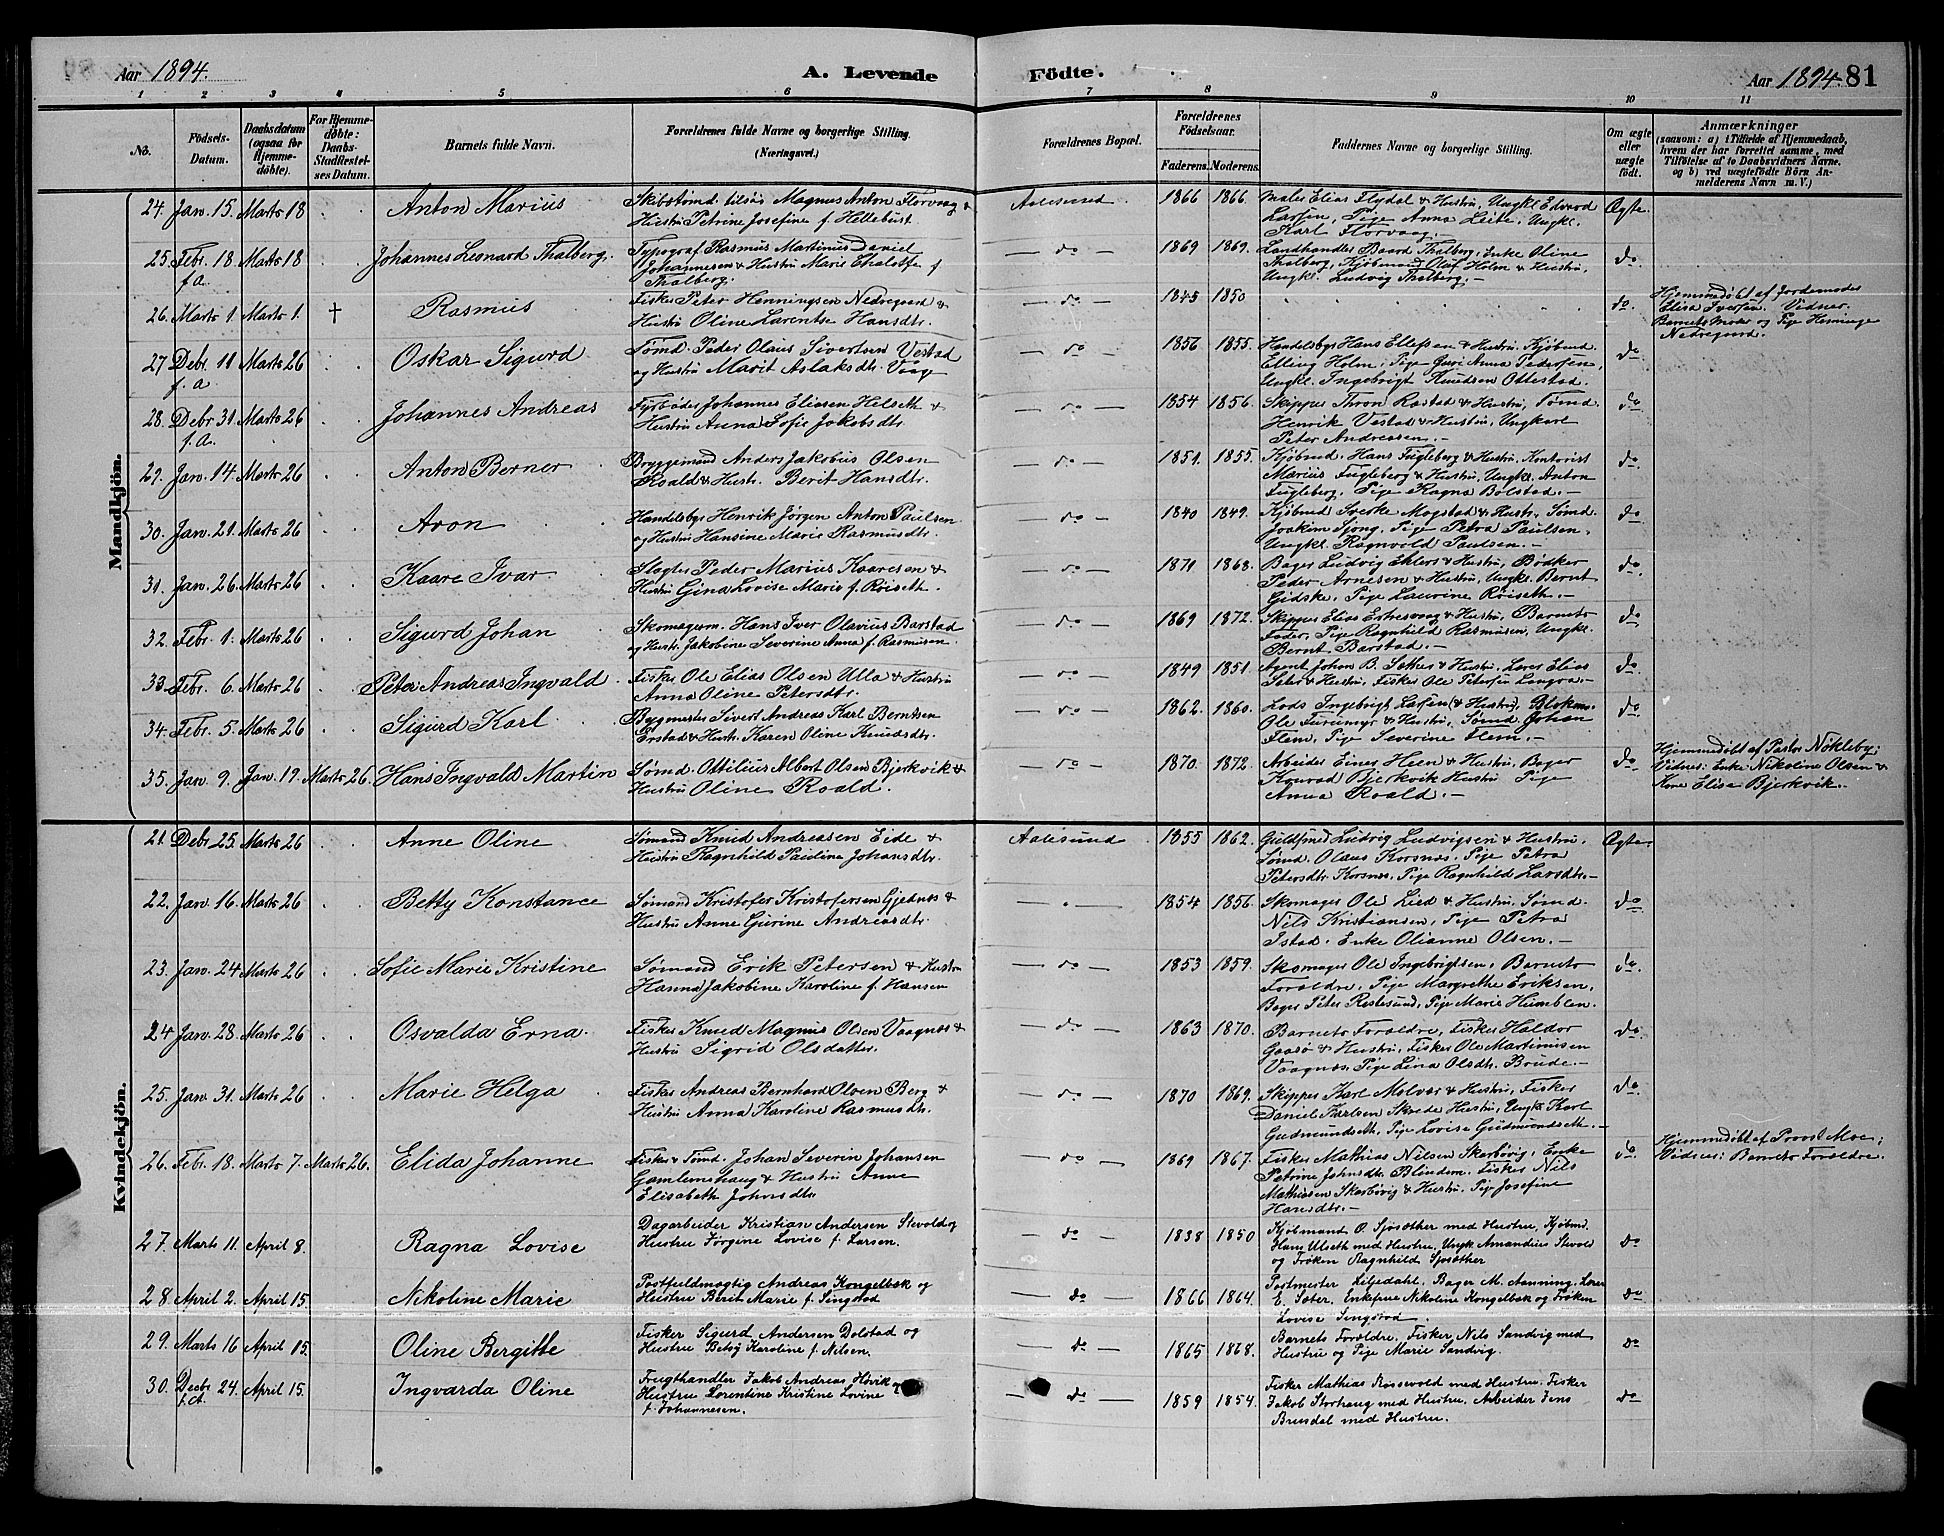 Aar 1894. A. Levende Födte. Aar 1894. 81
1 2 3 4 5 6 7 8 9 10 11
No. Födsels-Datum. Daabsdatum (ogsaa for Hjemmedöbte). For Hjemmedöbte: Daabs-Stadfæstelses Datum. Barnets fulde Navn. Forældrenes fulde Navne og borgerlige Stilling. (Næringsvei.) Forældrenes Bopæl. Forældrenes Födselsaar. Faderens. Moderens. Faddernes Navne og borgerlige Stilling. Om ægte eller uægte födt. Anmærkninger (saasom: a) i Tilfælde af Hjemmedaab, hvem der har forrettet samme, med Tilföielse af to Daabsvidners Navne. og b) ved uægtefödte Börn Anmelderens Navn m. V.)
Mandkjön.
24. Jan. 15. Marts 18 Anton Marius Skibstömd. tilsös Magnus Anton Florvaag & Aalesund 1866 1866. Maler Elias Flydal & Hustru, Ungkl. Edvard Ægte.
Hustru Petrine Josefine f. Hellebust Larsen, Pige Anna Leite, Ungkl.
Karl Florvaag.
25. Febr. 18 Marts 18 Johannes Leonard Thalberg. Typograf Rasmus Martinus Daniel do 1869 1869. Landhandler Baard Thalberg, Enke Oline do
f.a. Johannesen & Hustru Marie f. Thalberg, Kjöbmand Oluf Holm & Hustru,
Thalberg. Ungkl. Ludvig Thalberg.
26. Marts 1. Marts 1. † Rasmus Fisker Peter Henningsen Nedregaard & do 1845 1850 do. Hjemmedöbt af Jordemoder
Hustru Oline Larentse Hansdtr. Elisa Iversen. Vidner:
Barnets Moder og Pige Henninge
Nedregaard.
27 Debr. 11 Marts 26 Oskar Sigurd Tömd. Peder Olaus Sivertsen Vestad do 1856 1855. Handelsby Hans Ellefsen & Hustru, Kjöbmd. do
f.a og Hustru Marit Aslaksdtr. Vaag Elling Holm, Pige Guri Anna Pedersen,
Ungkl. Ingebrigt Knudsen Ottestad.
28. Debr 31 Marts 26 Johannes Andreas Fyrböder Johannes Eliasen Helseth & do 1854 1856. Skipper Thron Rastad & Hustru, Tömd. do
f.a. Hustru Anna Sofie Jakobsdtr. Henrik Vestad & Hustru, Ungkarl
Peter Andreasen.
29. Jan. 14 Marts 26 Anton Berner Bryggemand Anders Jakobus Olsen do 1851. 1855. Kjöbmd. Hans Fugleberg & Hustru, Kontorist do
Roald & Hustr. Berit Hansdtr. Marius Fugleberg & Hustru, Ungkl. Anton
Fugleberg, Pige Ragna Bolstad.
30. Jan. 21. Marts 26 Aron Handelsby Henrik Jörgen Anton Paulsen do 1840 1849. Kjöbmd Sverke Mogstad & Hustr. Tömd. do
og Hustru Hansine Marie Rasmusdtr. Joakim Sjong, Pige Petra Paulsen,
Ungkl. Ragnvald Paulsen.
31. Jan. 26. Marts 26 Kaare Ivar Slagter Peder Marius Kaaresen & do 1871 1868. Bager Ludvig Ehlers & Hustru, Bödker do
Hustru Gina Lovise Marie f. Röiseth Peder Arnesen & Hustru, Ungkl. Bernt
Gidske, Pige Laurine Röiseth.
32. Febr. 1. Marts 26 Sigurd Johan Skomagerm. Hans Iver Olavius Barstad do 1869 1872. Skipper Elias Ertesvaag & Hustru, Barnets do
og Hustr. Jakobine Severine Anna f. Rasmusen. Fader, Pige Ragnhild Rasmusen, Ungkl.
Bernt Barstad.
33. Febr. 6. Marts 26 Peter Andreas Ingvald Fisker Ole Elias Olsen Ulla & Hustru do 1849 1851. Agent Johan B. Sether & Hustru, Lærer Elias do
Anna Oline Petersdtr. Seter & Hustru, Fisker Ole Petersen Langva.
34. Febr. 5. Marts 26 Sigurd Karl Bygmester Sivert Andreas Karl Berntsen do 1862. 1860. Lods Ingebrigt Larsen & Hustru, Blokm. do
Erstad & Hustr. Karen Oline Knudsdtr. Ole Furumyr & Hustru, Tömd Johan
Flem, Pige Severine Flem.
35. Jan. 9. Jan. 19. Marts 26. Hans Ingvald Martin Sömd. Ottilius Albert Olsen Bjerkvik & do 1870. 1872. Arbeider Einer Heen & Hustru, Bager do Hjemmedöbt af Pastor Nökleby;
Hustru Oline Roald. Konrad Bjerkvik Hustru Pige Vidner: Enke Nikoline Olsen &
Anna Roald. Kone Elisa Bjerkvik.
Kvindekjön.
21. Debr. 25. Marts 26 Anne Oline Sömand Knud Andreasen Eide & Aalesund 1855 1862. Guldsmed Ludvig Ludvigsen & Hustru, Ægte.
Hustru Ragnhild Pauline Johansdtr. Sömd. Olaus Korsnes, Pige Petra
Petersdtr Korsnes, Pige Ragnhild Larsdtr.
22. Jan. 16. Marts 26 Betty Konstance Sömand Kristofer Kristofersen Gjelnes & 1854 1856. Skomager Ole Lied & Hustru, Sömd. do
Hustru Anne Gurine Andreasdtr. Nils Kristiansen, Pige Petra
Istad. Enke Olianne Olsen.
23. Jan. 24 Marts 26 Sofie Marie Kristine Sömand Erik Petersen & Hustru do 1853 1859. Skomager Ole Ingebrigtsen. Barnets do.
Hanna Jakobine Karoline f. Hansen Foreldre, Pige Margrethe Eriksen,
Bager Peter Ristesund, Pige Marie Humblen.
24 Jan. 28. Marts 26 Osvalda Erna. Fisker Knud Magnus Olsen Vaagnes & do 1863 1870. Barnets Foreldre, Fisker Haldor do
Hustru Sigrid Olsdatter. Gaasö & Hustru, Fisker Ole Martinusen
Vaagnes, Pige Lina Olsdtr. Brude.
25. Jan. 31. Marts 26 Marie Helga Fisker Andreas Bernhard Olsen Berg & do 1870 1869. Skipper Karl Molvær & Hustru, Fisker do
Hustru Anna Karoline Rasmusdtr. Daniel Karlsen Skrede Hustru, Ungk Karl
Gudmundseth, Pige Lovise Gudmundseth.
26. Febr. 18. Marts 7. Marts 26. Elida Johanne Fisker & Tömd. Johan Severin Johansen do 1869 1867. Fisker Mathias Nilsen Skarbövig, Enke do Hjemmedöbt af Provst Moe;
Gamlemshaug & Hustru Anne Petrine Johnsdtr. Blindem. Fisker Nils Vidner: Barnets Foreldre.
Elisabeth Johnsdtr. Mathiasen Skarbövig & Hustru. Pige Josefine
Hansdtr.
27. Marts 11. April 8. Ragna Lovise Dagarbeider Kristian Andersen Stevold og do 1838 1850 Kjöbmand O. Sjösether med Hustru, Kjöbmd. do
Hustru Jörgine Lovise f. Larsen. Hans Ulseth med Hustru, Ungk. Amandius Stevold
og Fröken Ragnhild Sjösether
28. April 2. April 15. Nikoline Marie Postfuldmægtig Andreas Kongelbæk og do 1866 1864. Postmester Liljedahl. Bager M. Aanning. Lærer do
Hustru Berit Marie f. Singstad E. Sæter. Enkefrue Nikoline Kongelbæk og Fröken
Lovise Singstad.
29. Marts 16 April 15. Oline Bergitte Fisker Sigurd Andersen Dolstad og do 1865 1868. Barnets Foreldre. Fisker Nils Sandvig med do
Hustru Betsy Karoline f. Nilsen. Hustru og Pige Marie Sandvig.
30. Decbr. 24. April 15. Ingvarda Oline Frugthandler Jakob Andreas Hovik og do 1859 1854. Fisker Mathias Rössevold med Hustru. Fisker do
f.A. Hustru Lorentine Kristine Lovine Jakob Storhaug med Hustru. Arbeider Jens
f. Johannesen. Brusdal med Hustru.